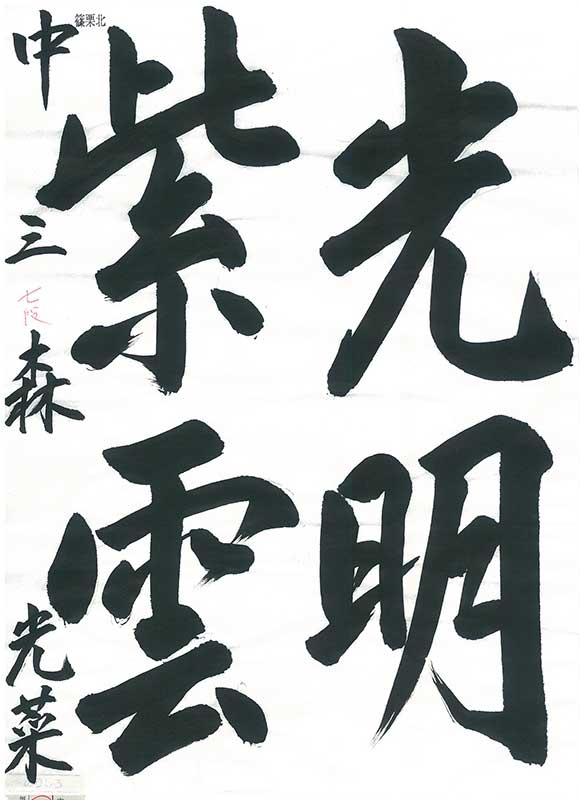 光明
紫雲
中三 七段 森 光菜
篠栗北